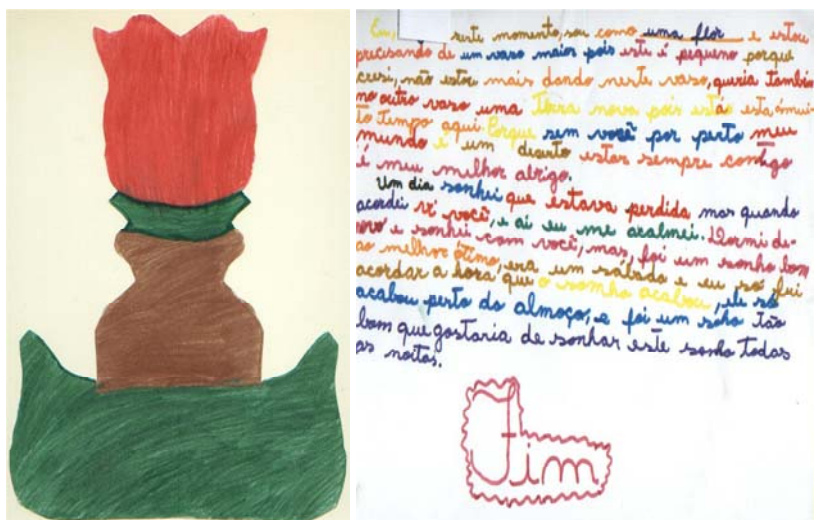 Eu, neste momento, sou como uma flor e estou
precisando de um vaso maior pois este é pequeno porque
cresi, não estou mais dando neste vaso, queria também
no outro vaso uma terra nova pois está esta á mui-
to tempo aqui. Porque sem você por perto meu
mundo é um deserto estar sempre contigo
é meu melhor abrigo.
Um dia sonhei que estava perdida mas quando
acordei vi você, e ai eu me acalmei. Dormi de-
novo e sonhei com você, mas, foi um sonho bom
ao melhor ótimo, era um sábado e eu só fui
acordar a hora que o somho acabou, ele só
acabou perto do almoço, e foi um sonho tão
bom que gostaria de sonhar este sonho todas
as noitas.
Fim